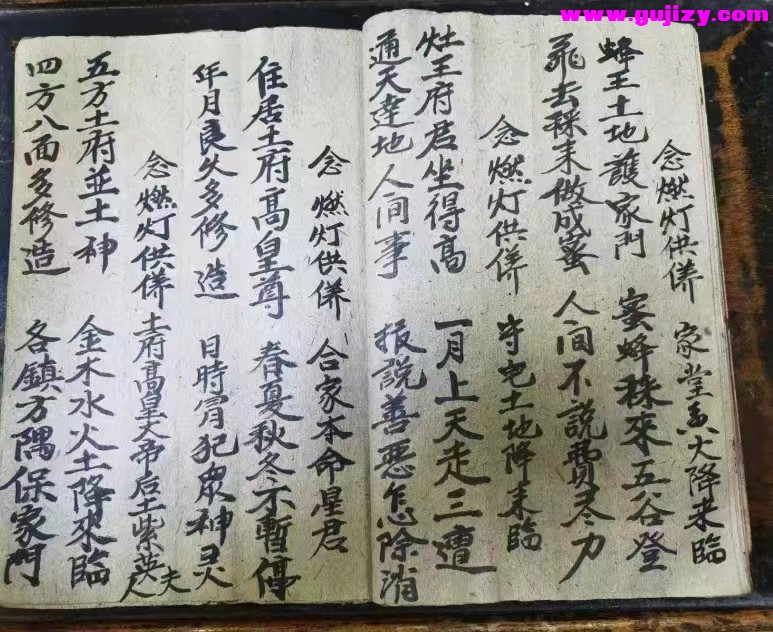 www.gujizy.com
念燃灯供养 家堂香火降来臨
蜂王土地護家門 蜜蜂秾來五谷登
飛去秾来做成蜜 人间不說費尽力
念燃灯供养 守宅土地降来臨
灶王府君坐得高 一月上天走三遭
通天達地人间事 报說善惡怎除消
念燃灯供养 合家本命星君
住居土府高皇尊 春夏秋冬不暫停
年月良久多修造 日時宵犯眾神灵
念燃灯供养 土府高皇大帝后土紫英夫人
五方土府並土神 金木水火土降來臨
四方八面多修造 各鎮方隅保家門